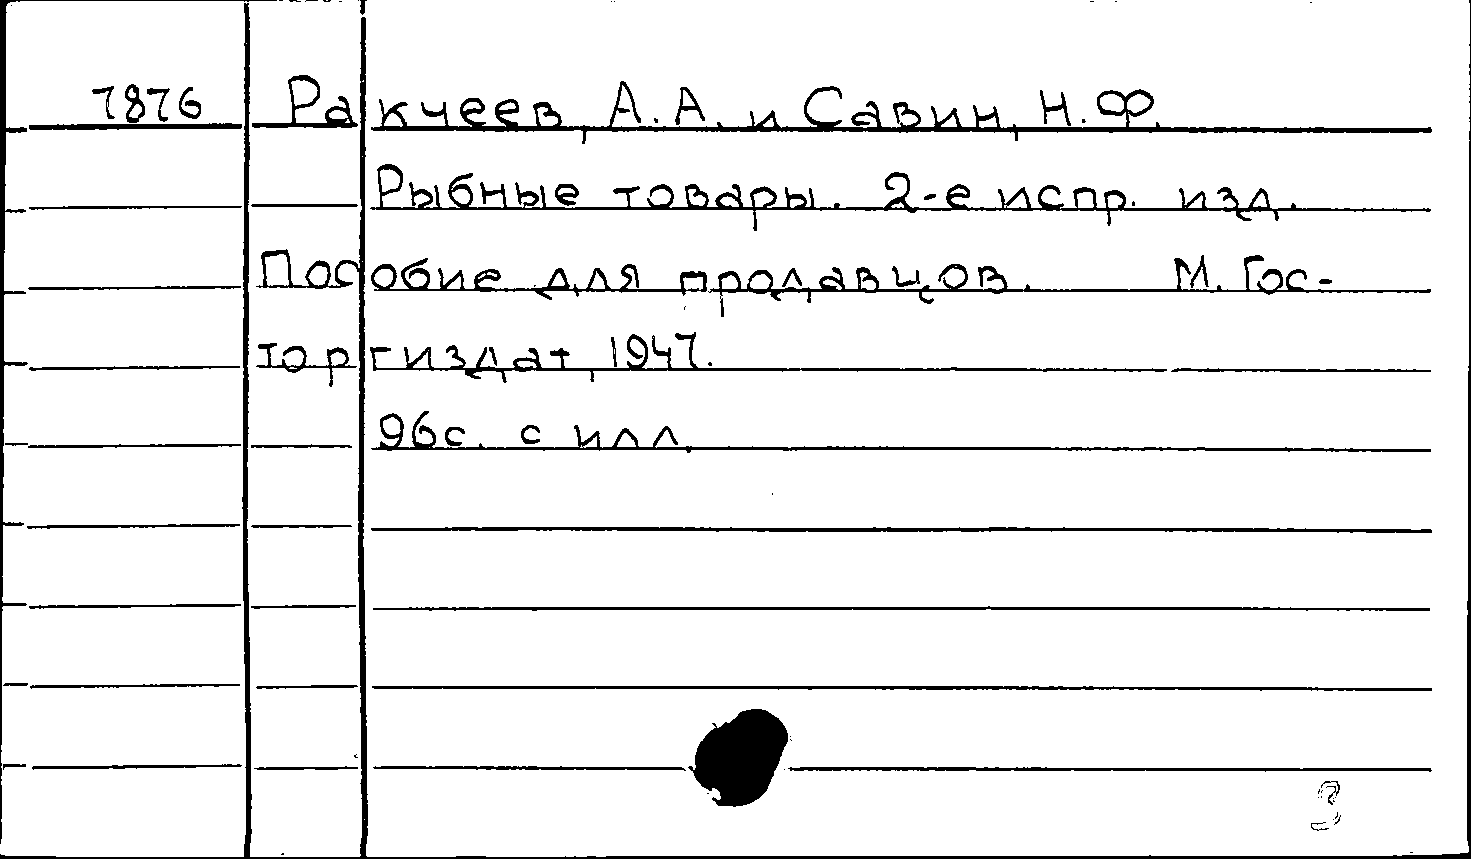 7876 Ракчеев, А.А. и Савин, Н.Ф.
Рыбные товары. 2-е испр. изд.
Пособие для продавцов. М. Гос-
торгиздат, 1947.
96с. с илл.
3